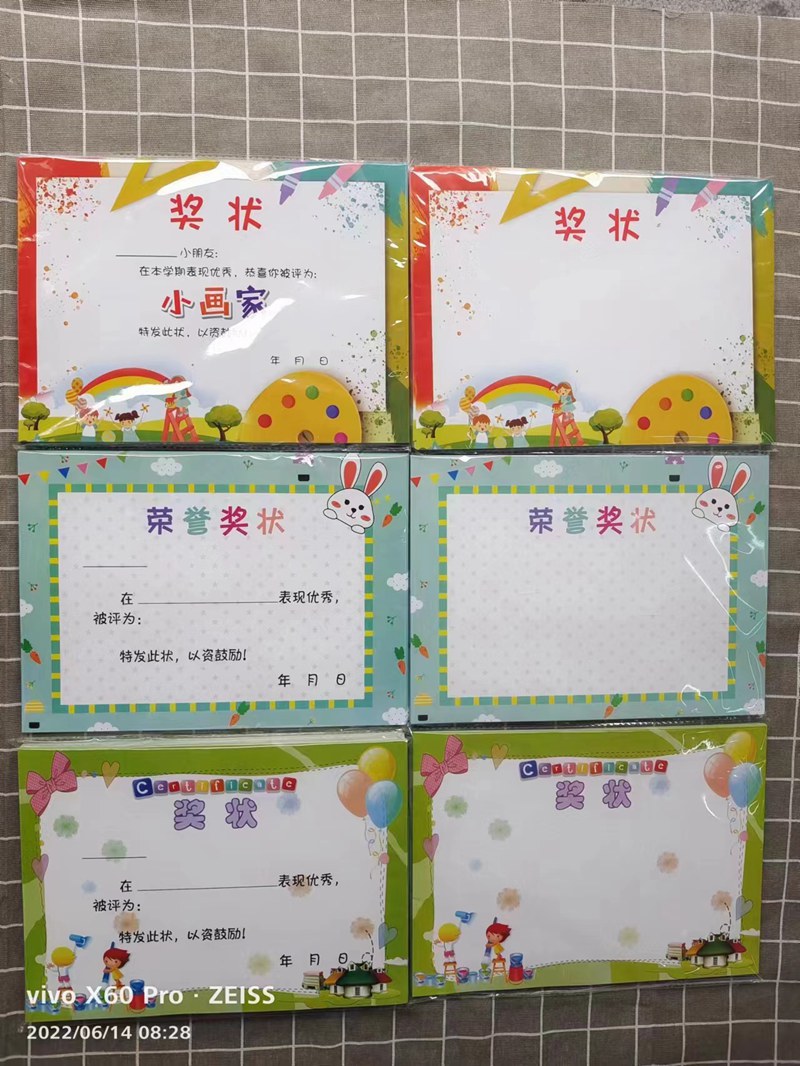 奖状
小朋友:
在本学期表现优秀，恭喜你被评为:
小画家
特发此状，以资鼓励!
年 月 日
奖状
荣誉奖状
在 表现优秀，
被评为:
特发此状，以资鼓励!
年 月 日
荣誉奖状
Certificate
奖状
在 表现优秀，
被评为:
特发此状，以资鼓励!
年 月 日
Certificate
奖状
vivo X60 Pro · ZEISS
2022/06/14 08:28